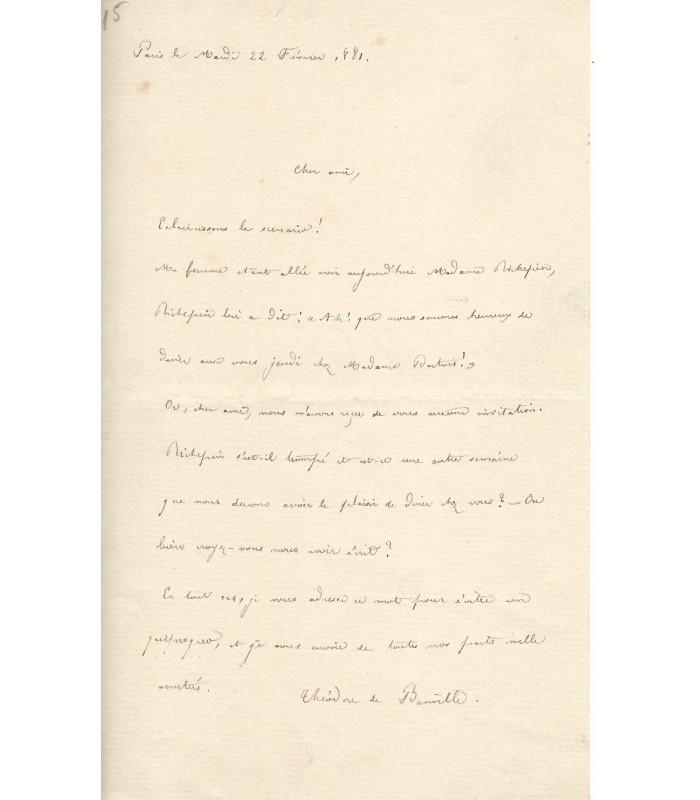 15
Paris le Mardi 22 Février 1881.
Cher ami,
Eclaircissons le scenario!
Ma femme etant allée voir aujourd'hui Madame Richepin,
Richepin lui a dit: « Ah! que nous sommes heureux de
diner avec vous jeudi chez Madame !»
Or, cher ami, nous n'avons reçu de vous aucune invitation.
Richepin s'est-il trompé et est-ce une autre semaine
que nous devons avoir le plaisir de diner chez vous? — Ou
bien croyez-vous nous avoir écrit?
En tout cas, je vous adresse ce mot pour éviter un
quiproquo, et je vous envoie de toutes nos parts mille
amitiés.
Théodore de Banville.